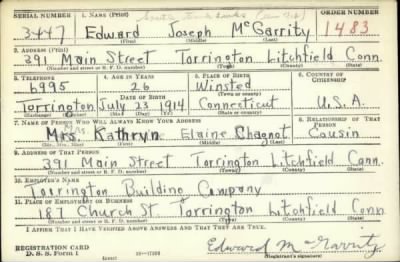 SERIAL NUMBER 1. NAME (Print) ORDER NUMBER
3447 Edward Joseph McGarrity 1483
(First) (Middle) (Last)
2. ADDRESS (Print)
391 Main Street Torrington Litchfield Conn.
(Number and street or R. F. D. number) (Town) (County) (State)
3. TELEPHONE 4. AGE IN YEARS 5. PLACE OF BIRTH 6. COUNTRY OF CITIZENSHIP
6995 26 Winsted
DATE OF BIRTH (Town or county)
Torrington July 23 1914 Connecticut U.S.A.
(Exchange) (Number) (Mo.) (Day) (Yr.) (State or country)
7. NAME OF PERSON WHO WILL ALWAYS KNOW YOUR ADDRESS 8. RELATIONSHIP OF THAT PERSON
Mrs. Kathryn Elaine Chagnot Cousin
(Mr., Mrs., Miss) (First) (Middle) (Last)
9. ADDRESS OF THAT PERSON
391 Main Street Torrington Litchfield Conn.
(Number and street or R. F. D. number) (Town) (County) (State)
10. EMPLOYER'S NAME
Torrington Building Company
11. PLACE OF EMPLOYMENT OR BUSINESS
187 Church St. Torrington Litchfield Conn
(Number and street or R. F. D. number) (Town) (County) (State)
I AFFIRM THAT I HAVE VERIFIED ABOVE ANSWERS AND THAT THEY ARE TRUE.
REGISTRATION CARD
D. S. S. Form 1
Edward McGarrity
(Registrant's signature)